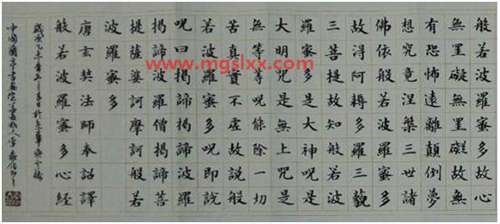 般若波羅蜜多故心
無罣礙無罣礙故無
有恐怖遠離顛倒夢
想究竟涅槃三世諸
佛依般若波羅蜜多
故得阿耨多羅三藐
三菩提故知般若波
羅蜜多是大神呪是
大明呪是無上呪是
無等等呪能除一切
苦真實不虛故說般
若波羅蜜多呪即說
呪曰揭諦揭諦波羅
揭諦波羅僧揭諦菩
提薩婆訶摩訶般若
波羅蜜多
唐玄奘法師奉詔譯
般若波羅蜜多心經
乙未年五月
中國蘭亭書畫
www.mgslxx.com